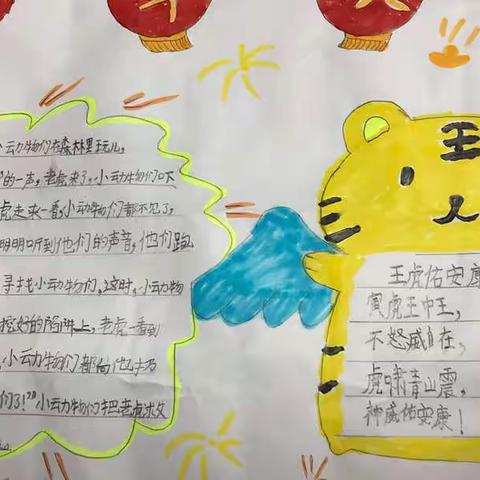 小动物们在森林里玩儿,
的一声,老虎来了,小动物们吓
虎走来一看,小动物们都不见了,
明明听到他们的声音,他们跑
寻找小动物们,这时,小动物
挖好的陷阱上,老虎一看到
小动物们都向他
们了!”小动物们把老虎
王
王虎佑安康
寅虎王中王,
不怒威自在,
虎啸青山震,
神威佑安康!